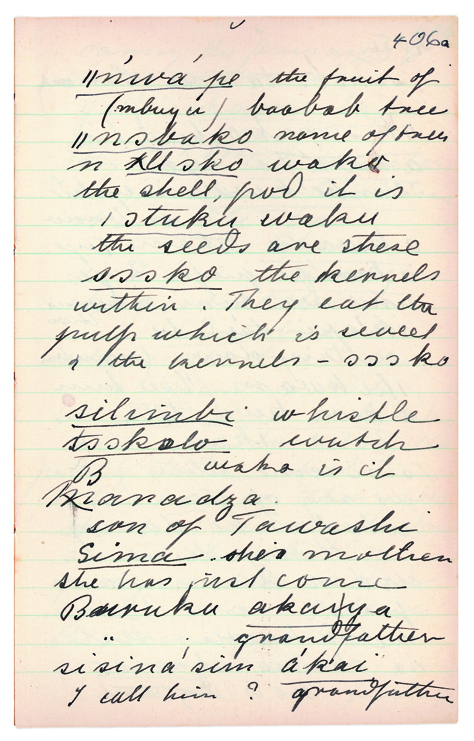 406a
"ńwá pe the fruit of
(mbuyu) boabab tree
"nsbako name of tree
n sko wako
the shell, pod it is
stuku waku
the seeds are these
sssko the kernels
within. They eat the
pulp which is sweet
& the kernels sssko
silimbi whistle
tsskolo watch
B wako is it
Karadza
son of Tawashi
Sima. she's mother
she has just come
Baruku akaiya
" . grandfather
sisiná sim ákai
I call him ? grandfather